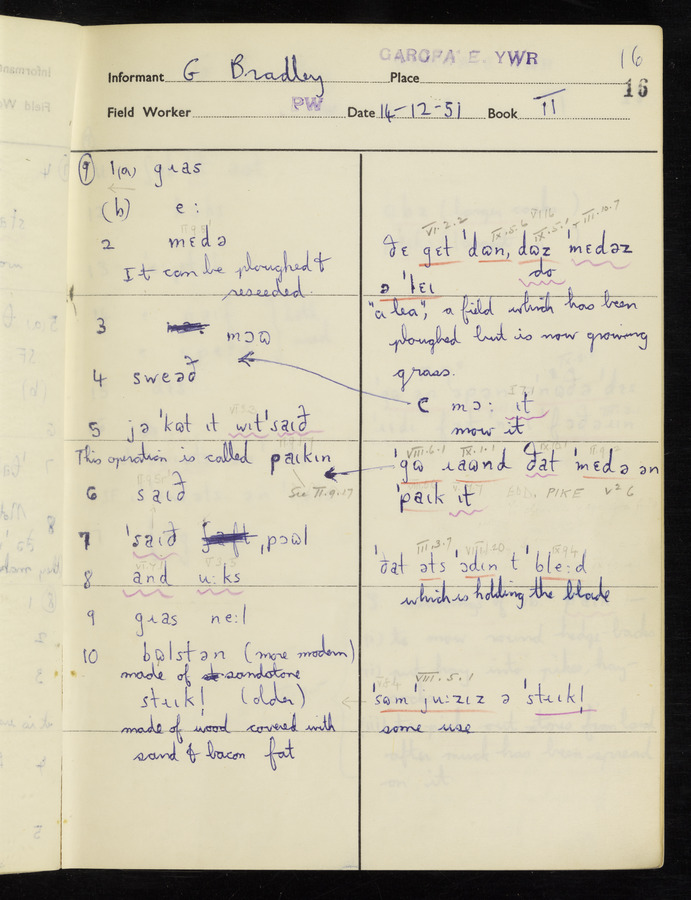 GARGRAVE. YWR
16
Informant G Bradley Place
16
Field Worker PW Date 14-12-51 Book II
⑨ 1(a) gɹas
(b) e:
2 mɛdə
It can be ploughed &
reseeded.
3 mɔω
4 sweəð
5 jə 'kət it wit'saɪð
This operation is called paɪkɪn
See II.9.17
6 saɪð
7 'saɪð ˌpɔωl
8 and u:ks
9 gɹas ne:l
10 bωlstən (more modern)
made of sandstone
stɹɪkl̩ (older)
made of wood covered with
sand & bacon fat
VI.2.2 IX.5.6 VIII.10.7
ðɛ gɛt 'dωn, dωz 'mɛdəz
do
ə 'lɛɪ
"a lea", a field which has been
ploughed but is now growing
grass.
c mɔ: it
mow it
VIII.6.1 IX.1.1
'gω ɹaωnd ðat 'mɛdə ən
'paɪk ɪt PIKE v² 6
III.3.7 VIII.1.20 IX.9.4
'ðat əts 'ədɪn t 'ble:d
which is holding the blade
VIII.5.1
'sωm 'ju:zɪz ə 'stɹɪkl̩
some use